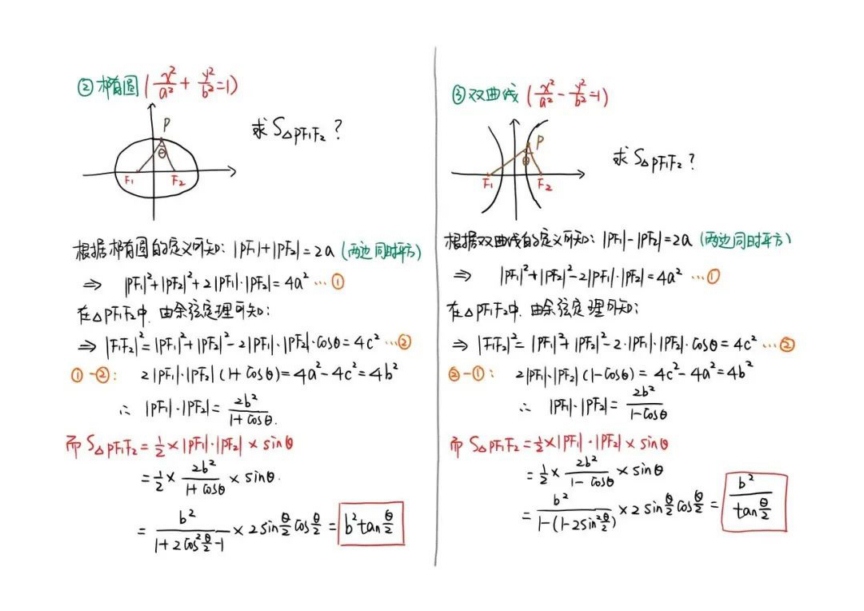 ②椭圆(x²/a² + y²/b²=1)
P
θ
F₁ F₂
求S△PF₁F₂?
根据椭圆的定义可知:|PF₁|+|PF₂|=2a(两边同时平方)
⇒ |PF₁|²+|PF₂|²+2|PF₁|·|PF₂|=4a² …①
在△PF₁F₂中,由余弦定理可知:
⇒ |F₁F₂|²=|PF₁|²+|PF₂|²-2|PF₁|·|PF₂|·cosθ=4c² …②
①-②: 2|PF₁|·|PF₂|(1+cosθ)=4a²-4c²=4b²
∴ |PF₁|·|PF₂|= 2b²/(1+cosθ).
而S△PF₁F₂=½×|PF₁|·|PF₂|×sinθ
=½× 2b²/(1+cosθ) ×sinθ.
= b²/(1+2cos²θ/2-1) ×2sinθ/2cosθ/2= b²tanθ/2
③双曲线(x²/a² - y²/b²=1)
P
θ
F₁ F₂
求S△PF₁F₂?
根据双曲线的定义可知:|PF₁|-|PF₂|=2a(两边同时平方)
⇒ |PF₁|²+|PF₂|²-2|PF₁|·|PF₂|=4a² …①
在△PF₁F₂中,由余弦定理可知:
⇒ |F₁F₂|²=|PF₁|²+|PF₂|²-2·|PF₁|·|PF₂|·cosθ=4c² …②
②-①: 2|PF₁|·|PF₂|(1-cosθ)=4c²-4a²=4b²
∴ |PF₁|·|PF₂|= 2b²/(1-cosθ)
而S△PF₁F₂=½×|PF₁|·|PF₂|×sinθ
=½× 2b²/(1-cosθ) ×sinθ
= b²/(1-(1-2sin²θ/2)) ×2sinθ/2cosθ/2= b²/(tanθ/2)